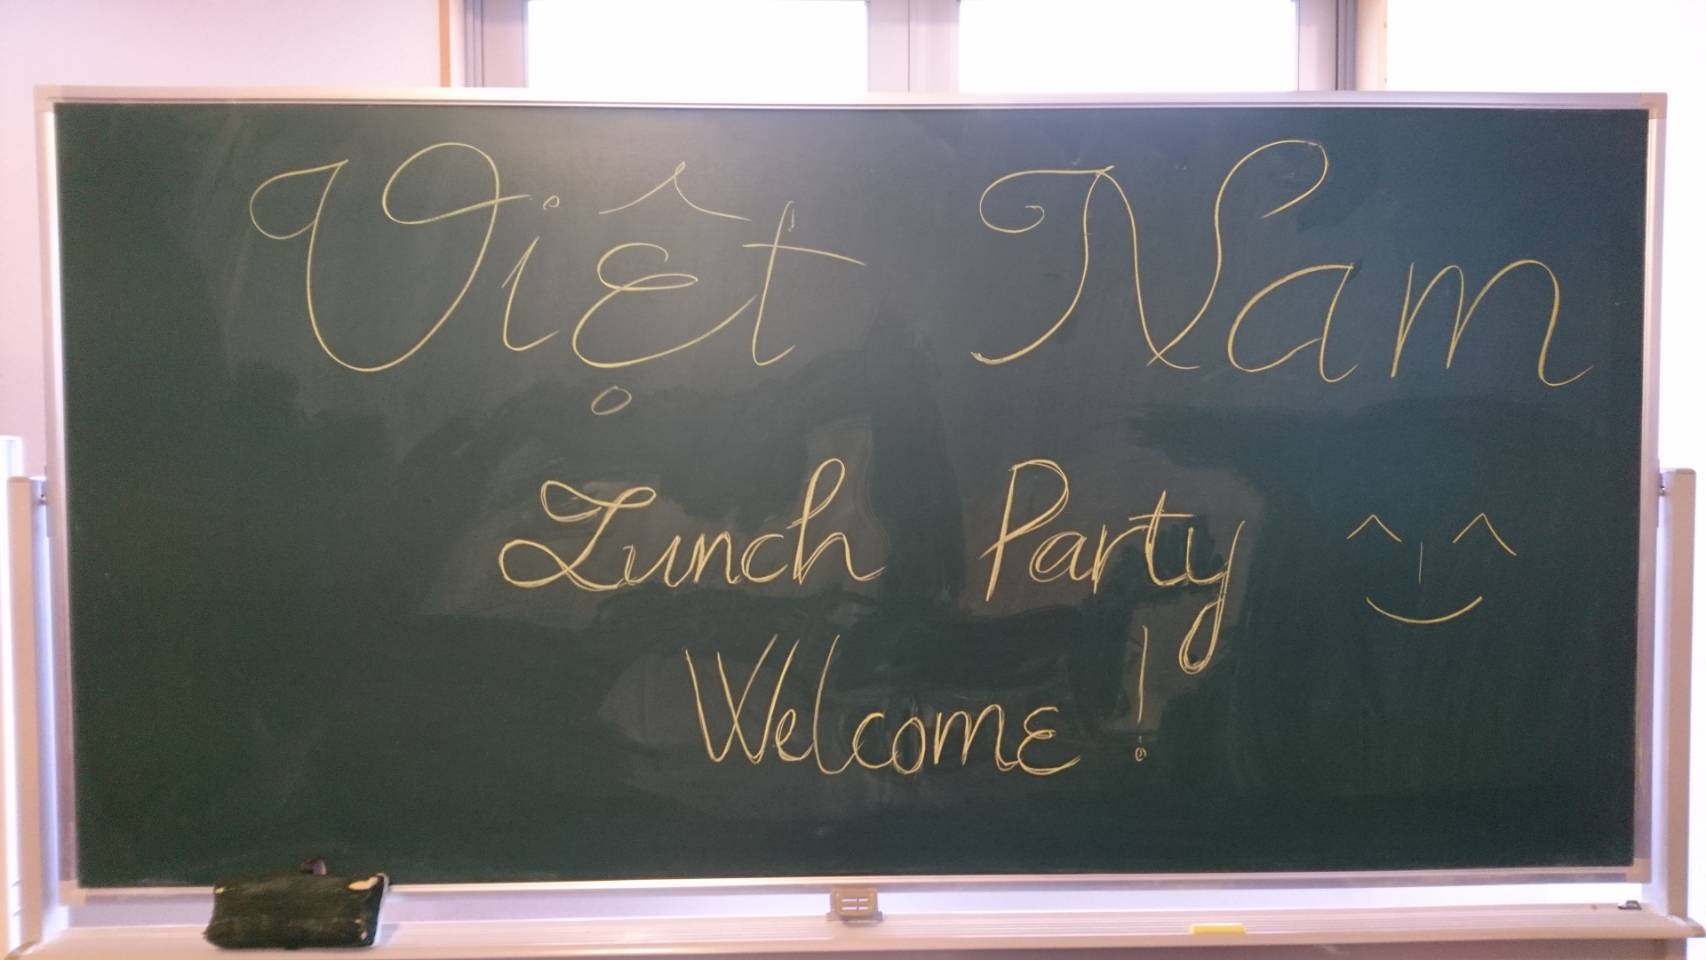 Việt Nam
Lunch Party
Welcome!